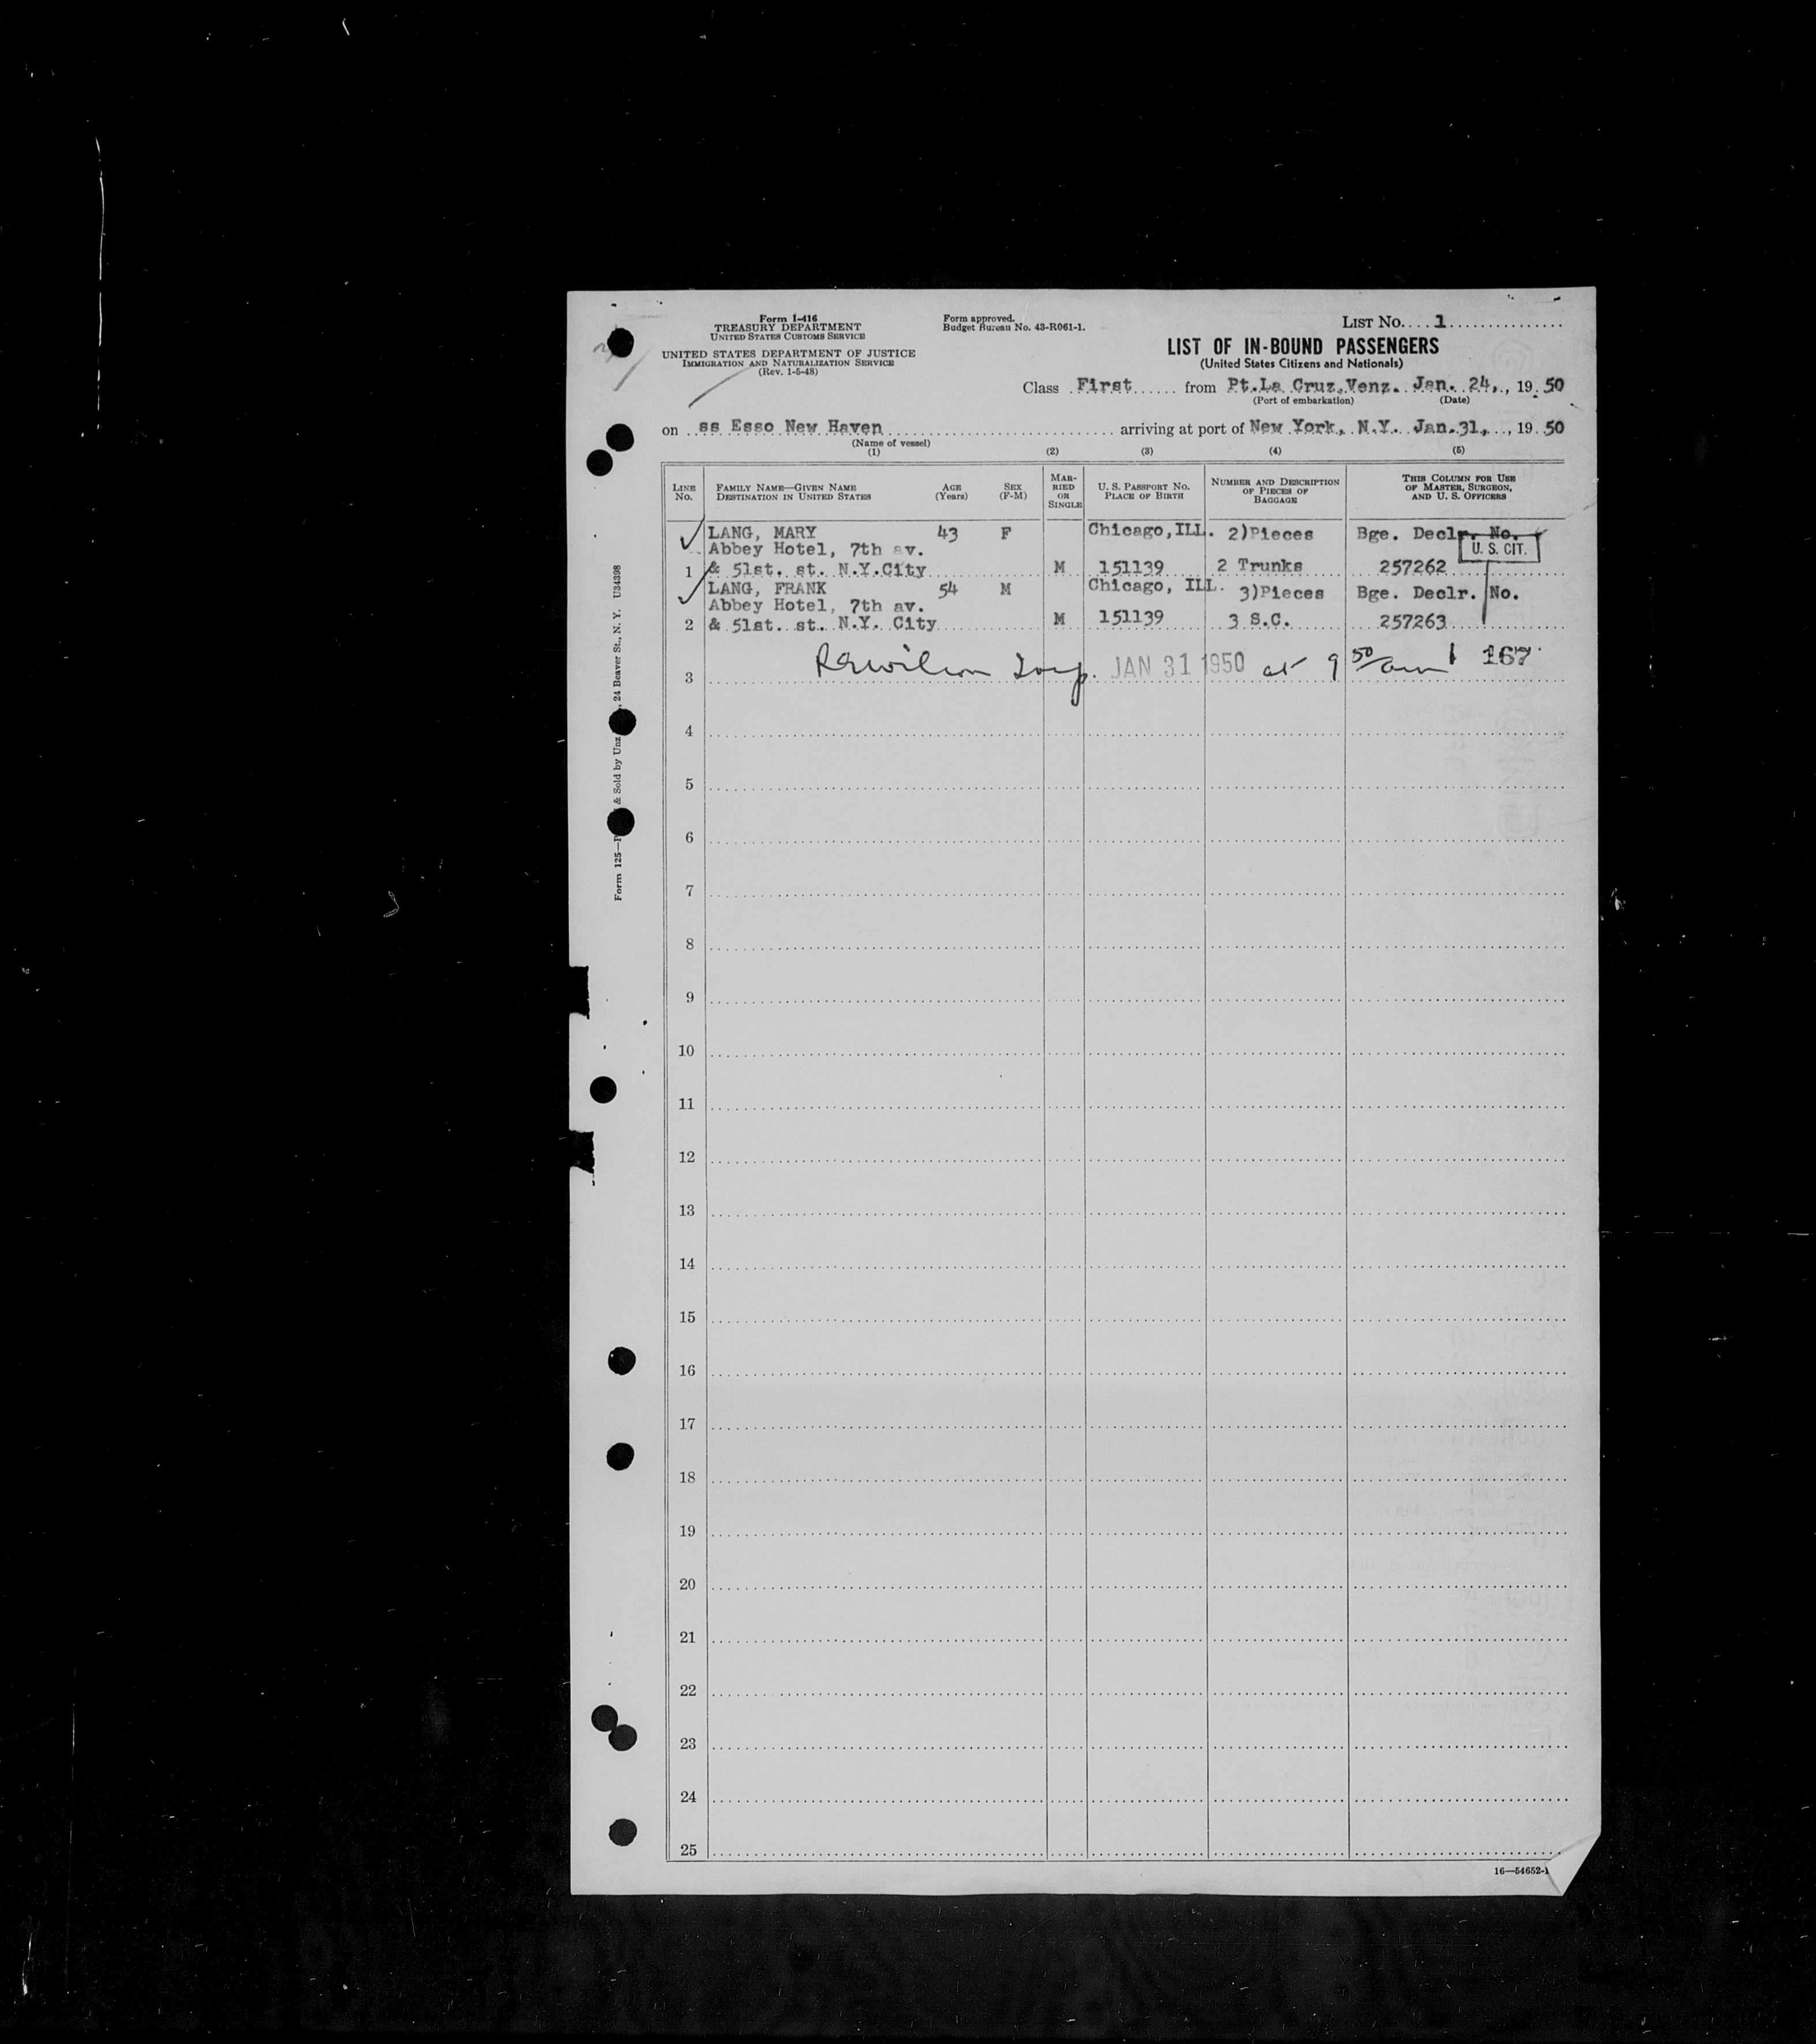 Form I-416
TREASURY DEPARTMENT
UNITED STATES CUSTOMS SERVICE
UNITED STATES DEPARTMENT OF JUSTICE
IMMIGRATION AND NATURALIZATION SERVICE
(Rev. 1-5-48)
Form approved.
Budget Bureau No. 43-R061-1.
LIST No. 1
LIST OF IN-BOUND PASSENGERS
(United States Citizens and Nationals)
Class First from Pt.La Cruz,Venz. Jan. 24, , 19 50
(Port of embarkation) (Date)
on ss Esso New Haven arriving at port of New York, N.Y. Jan.31, , 19 50
(Name of vessel)
(1) (2) (3) (4) (5)
LINE No. FAMILY NAME—GIVEN NAME DESTINATION IN UNITED STATES AGE (Years) SEX (F-M) MARRIED OR SINGLE U. S. PASSPORT No. PLACE OF BIRTH NUMBER AND DESCRIPTION OF PIECES OF BAGGAGE THIS COLUMN FOR USE OF MASTER, SURGEON, AND U. S. OFFICERS
LANG, MARY 43 F Chicago,ILL. 2)Pieces Bge. Declr. No.
Abbey Hotel, 7th av. U. S. CIT.
1 & 51st. st. N.Y.City M 151139 2 Trunks 257262
LANG, FRANK 54 M Chicago, ILL. 3)Pieces Bge. Declr. No.
Abbey Hotel, 7th av.
2 & 51st. st. N.Y. City M 151139 3 S.C. 257263
3 Wilson Insp. JAN 31 1950 at 9 50 am 167
4
5
6
7
8
9
10
11
12
13
14
15
16
17
18
19
20
21
22
23
24
25
16—54652-1
Form 125— & Sold by Unz , 24 Beaver St., N. Y. U34398